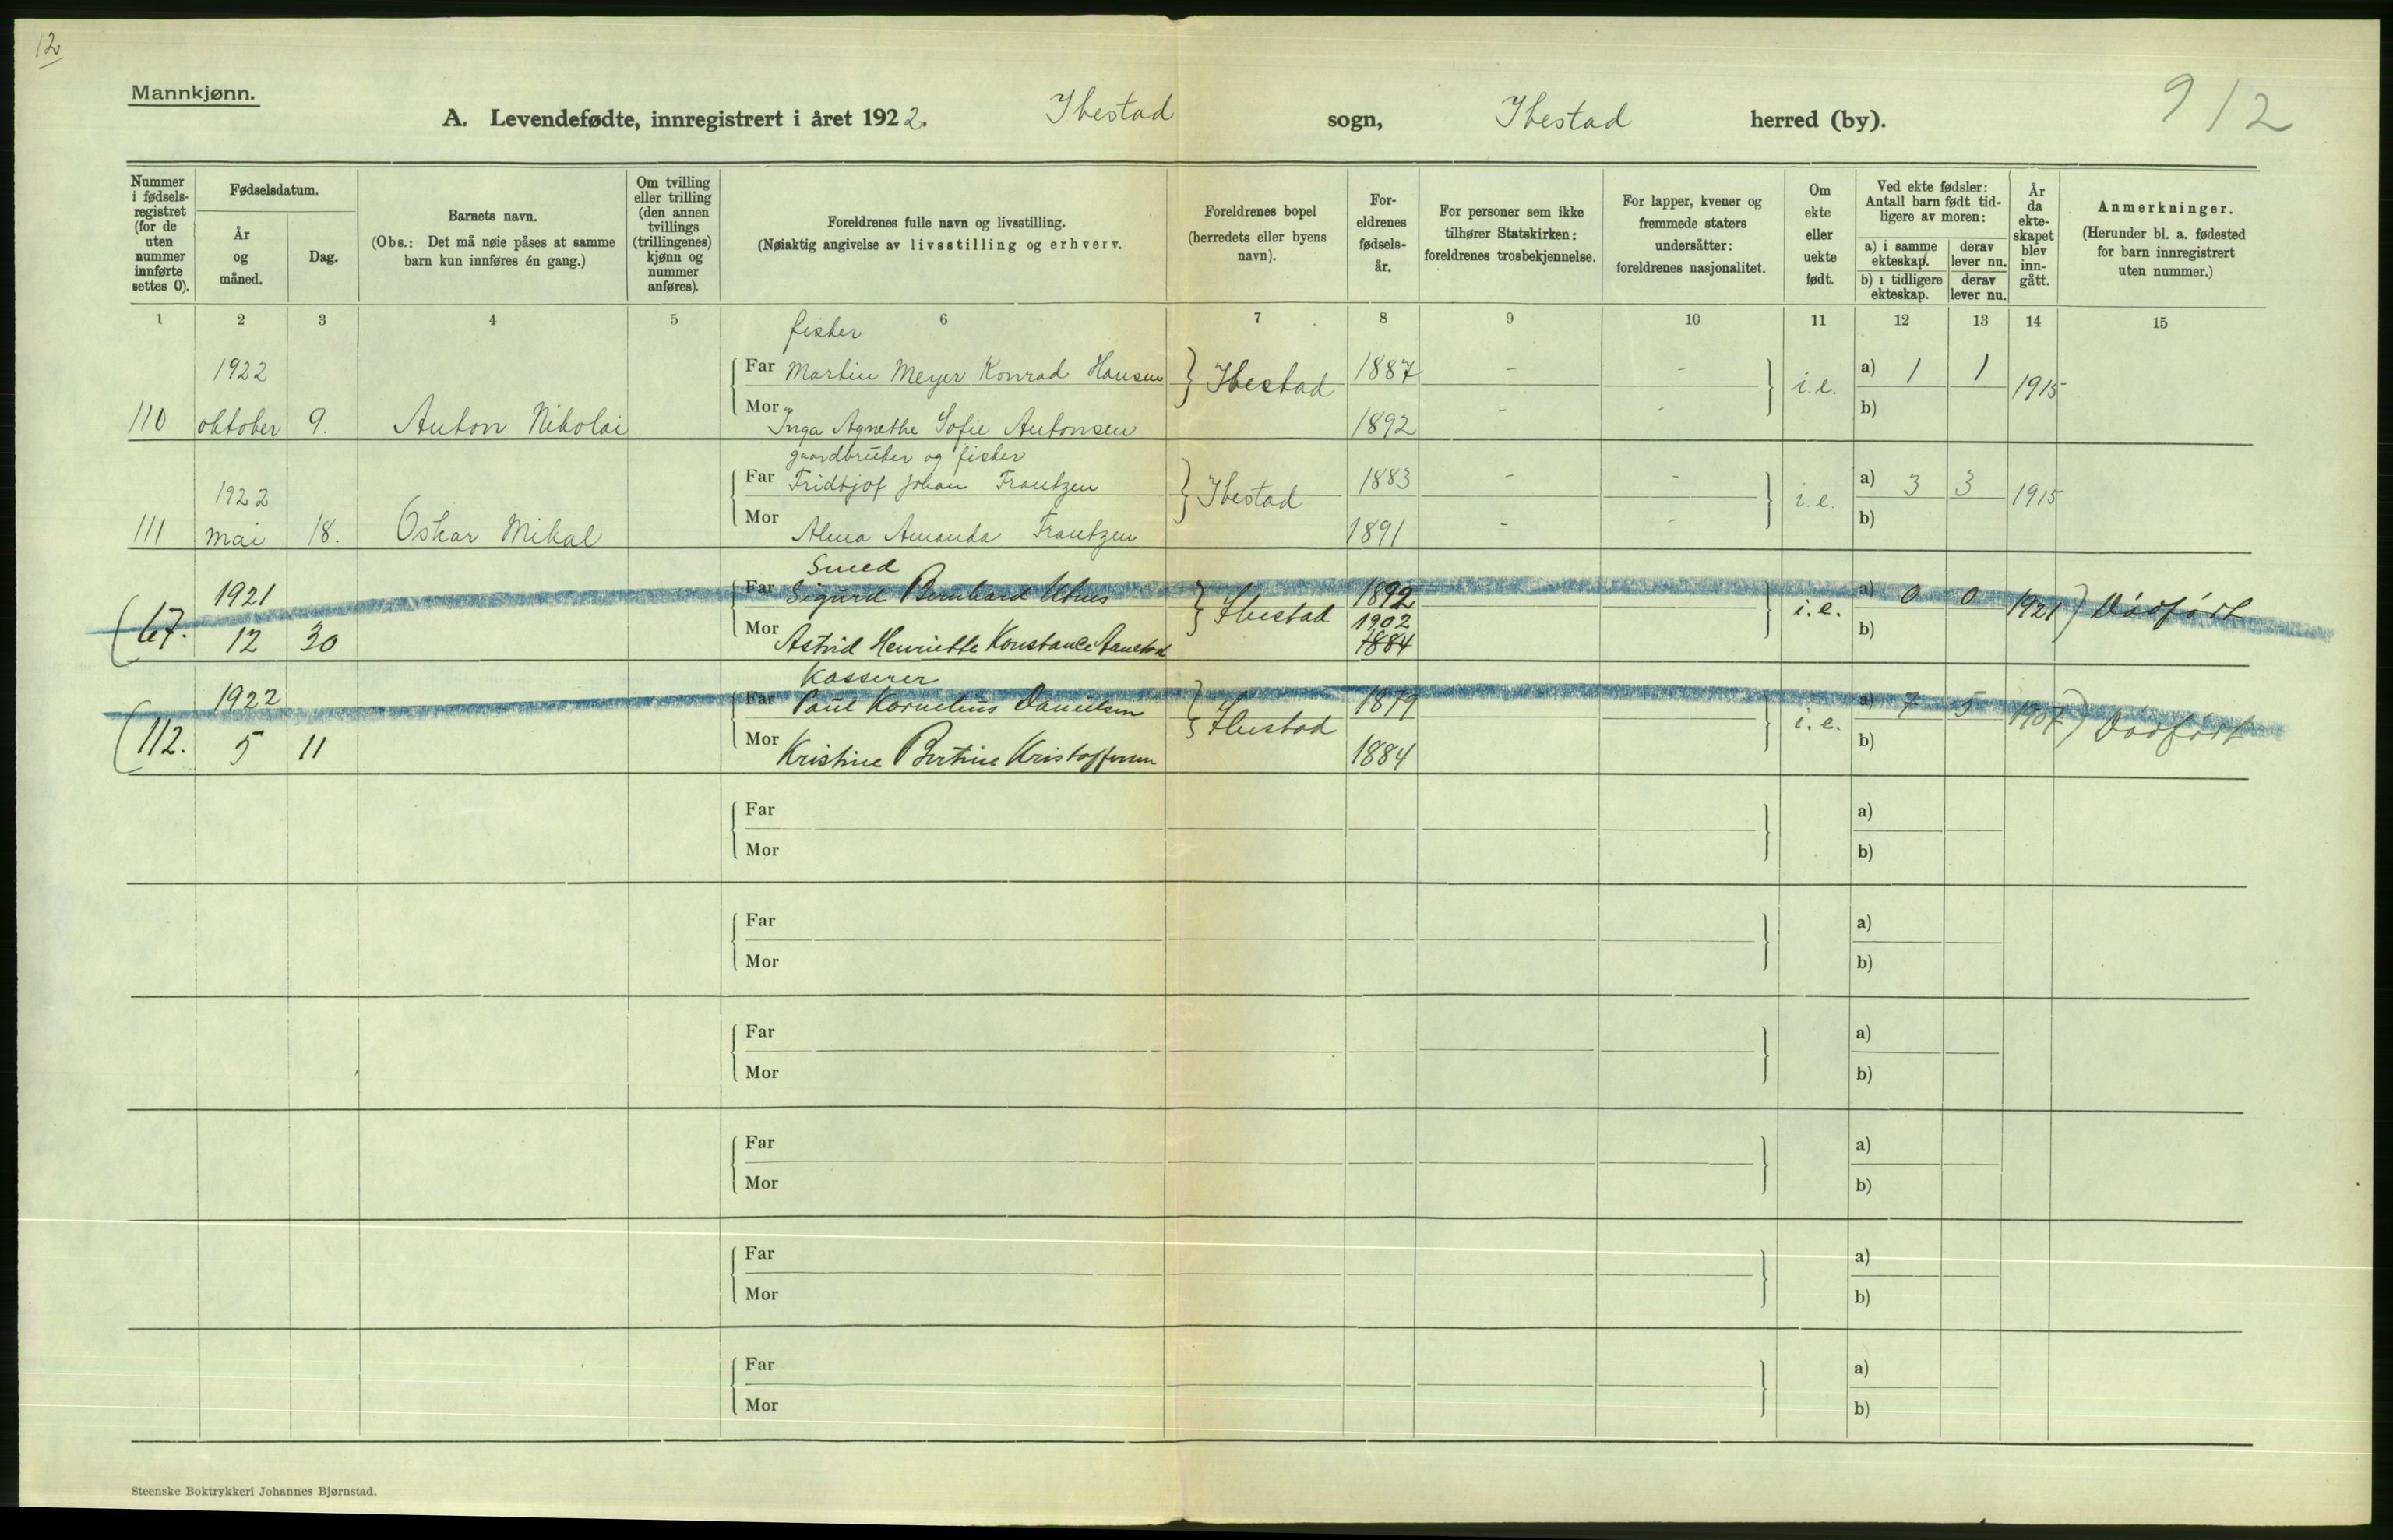 12
Mannkjønn.
A. Levendefødte, innregistrert i året 1922. Ibestad sogn, Ibestad herred (by).
9/2
Nummer i fødselsregistret (for de uten nummer innførte settes 0).
Fødselsdatum.
År og måned.
Dag.
Barnets navn.
(Obs.: Det må nøie påses at samme barn kun innføres én gang.)
Om tvilling eller trilling (den annen tvillings (trillingenes) kjønn og nummer anføres).
Foreldrenes fulle navn og livsstilling.
(Nøiaktig angivelse av livsstilling og erhverv.
Foreldrenes bopel (herredets eller byens navn).
Foreldrenes fødselsår.
For personer som ikke tilhører Statskirken: foreldrenes trosbekjennelse.
For lapper, kvener og fremmede staters undersåtter: foreldrenes nasjonalitet.
Om ekte eller uekte født.
Ved ekte fødsler: Antall barn født tidligere av moren:
a) i samme ekteskap. derav lever nu.
b) i tidligere ekteskap. derav lever nu.
År da ekteskapet blev inngått.
Anmerkninger.
(Herunder bl. a. fødested for barn innregistrert uten nummer.)
1 2 3 4 5 6 7 8 9 10 11 12 13 14 15
fisker
1922 Far Martin Meyer Konrad Hansen Ibestad 1887 - - i.e. a) 1 1 1915
110 oktober 9. Anton Nikolai Mor Inga Agnethe Sofie Antonsen 1892 - - b)
gaardbruker og fisker
1922 Far Fridtjof Johan Frantzen Ibestad 1883 - - i.e. a) 3 3 1915
111 mai 18. Oskar Mikal Mor Alma Amanda Frantzen 1891 - - b)
Smed
1921 Far Sigurd Bernhard Ibestad 1892 i.e. a) 0 0 1921) Dødfødt
(67. 12 30 Mor Astrid Henriette Konstance 1902 1884 b)
Kasserer
1922 Far Paul Kornelius Danielsen Ibestad 1879 i.e. a) 7 5 1907) Dødfødt
(112. 5 11 Mor Kristine Bertine Kristoffersen 1884 b)
Far a)
Mor b)
Far a)
Mor b)
Far a)
Mor b)
Far a)
Mor b)
Far a)
Mor b)
Far a)
Mor b)
Steenske Boktrykkeri Johannes Bjørnstad.